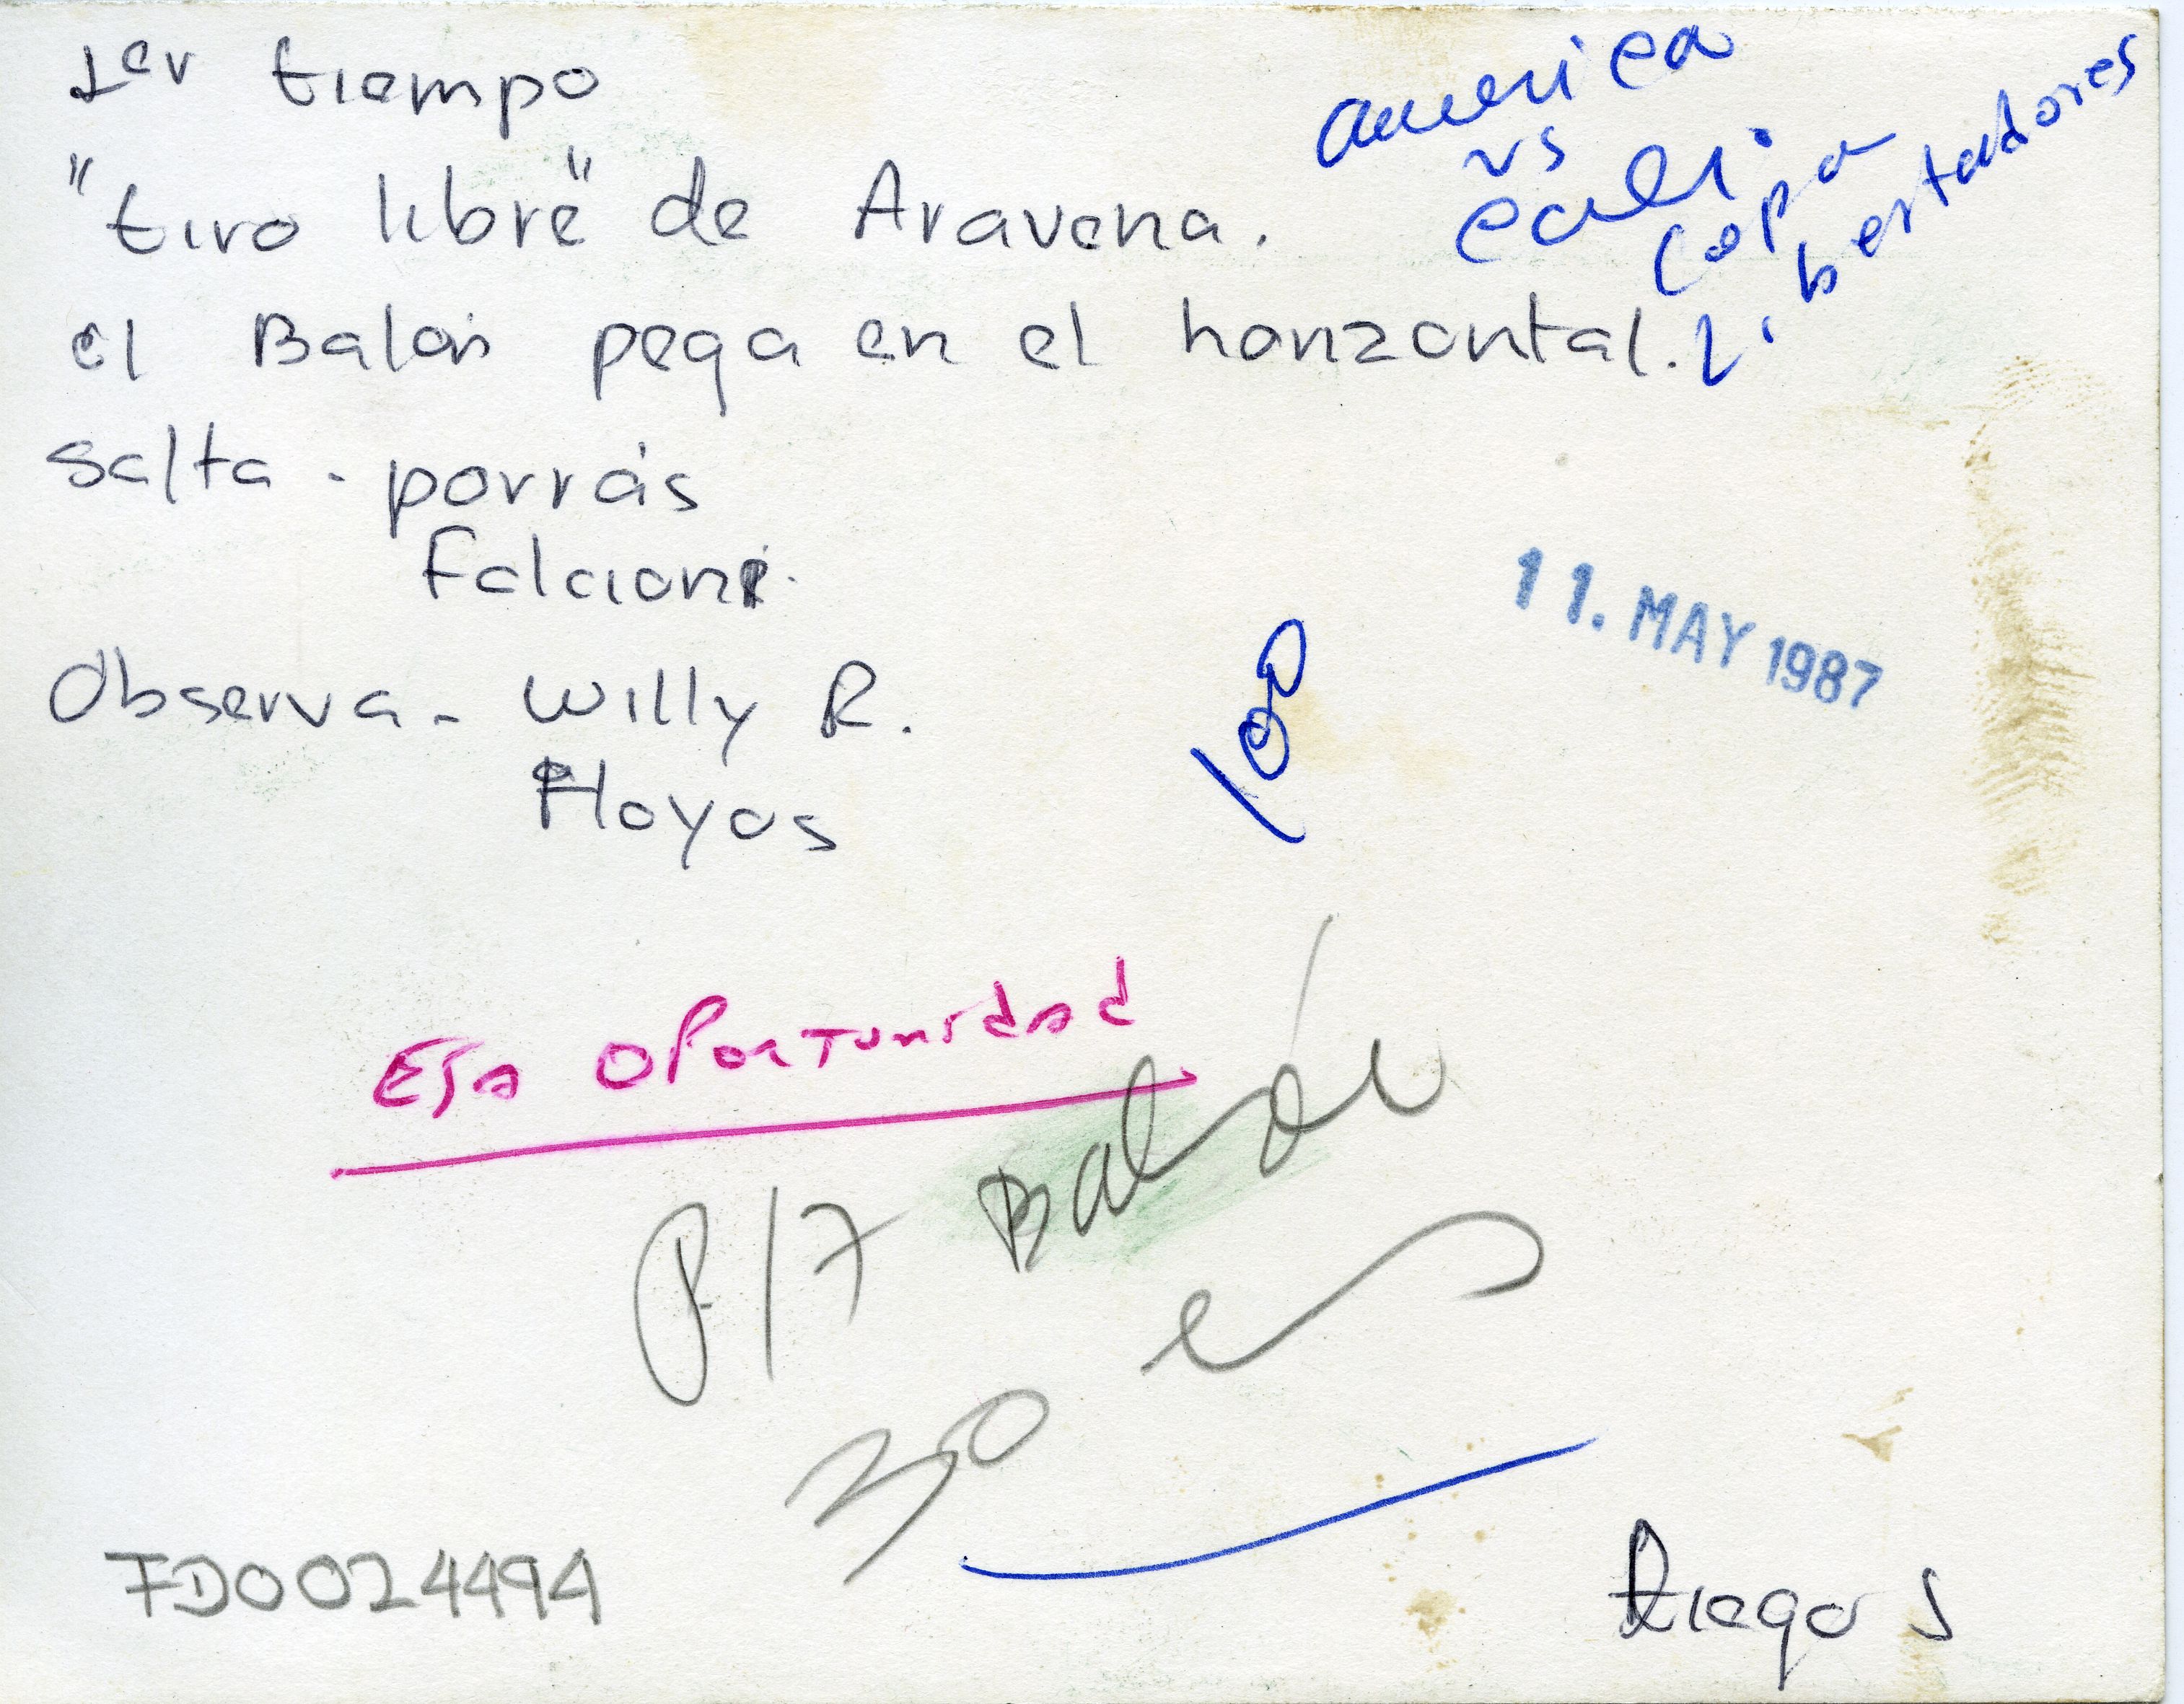 1er tiempo
"tiro libre" de Aravena.
el Balón pega en el horizontal.
salta - porrás
Falcioni.
Observa - Willy R.
Hoyos
america
vs
cali
copa
libertadores
11. MAY 1987
100
Esa oportunidad
P/7 Balón
30
FD0024494
Diego S